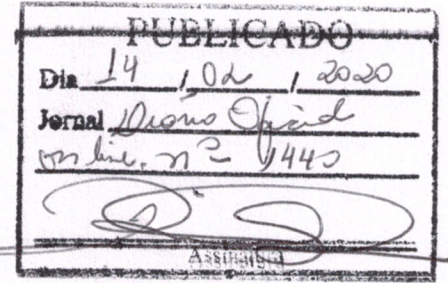 PUBLICADO
Dia 14 / 02 / 2020
Jornal Diário Oficial
on line, nº 1440
Assinatura